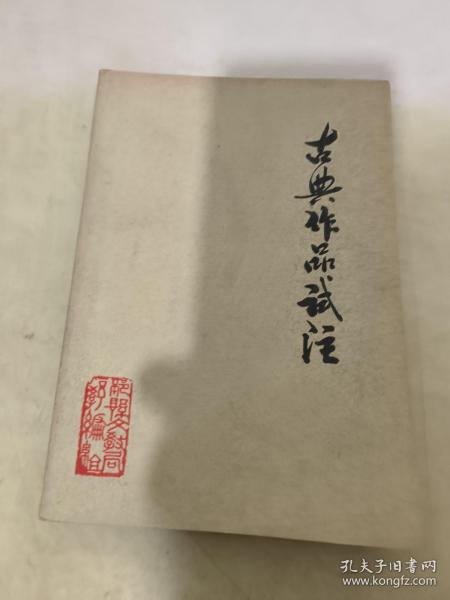 古典作品试注
孔夫子旧书网
www.kongfz.com